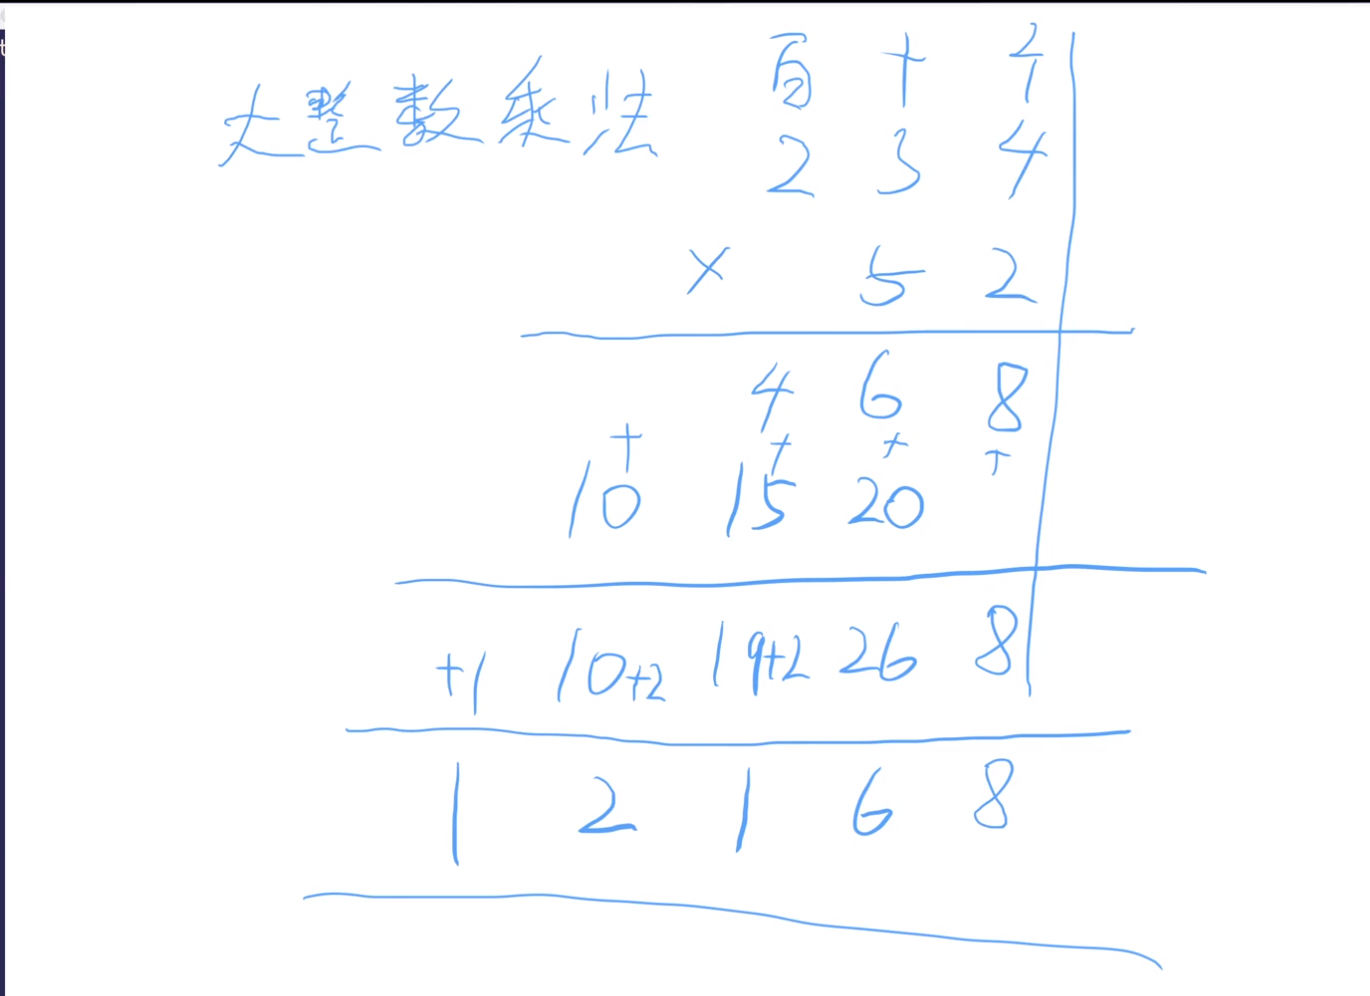 大整数乘法
百 十 个
2 3 4
× 5 2
4 6 8
+ + + +
10 15 20
+1 10+2 19+2 26 8
1 2 1 6 8